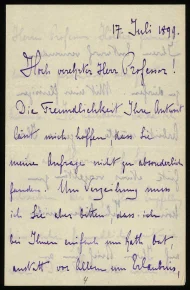 17. Juli 1899.
Hoch verehrter Herr Professor!
Die Freundlichkeit Ihrer Antwort
lässt mich hoffen, dass Sie
meine Anfrage nicht zu absonderlich
fanden. Um Verzeihung muss
ich Sie aber bitten, dass ich
bei Ihnen einfach um Rath bat,
anstatt vor Allem um Erlaubnis,